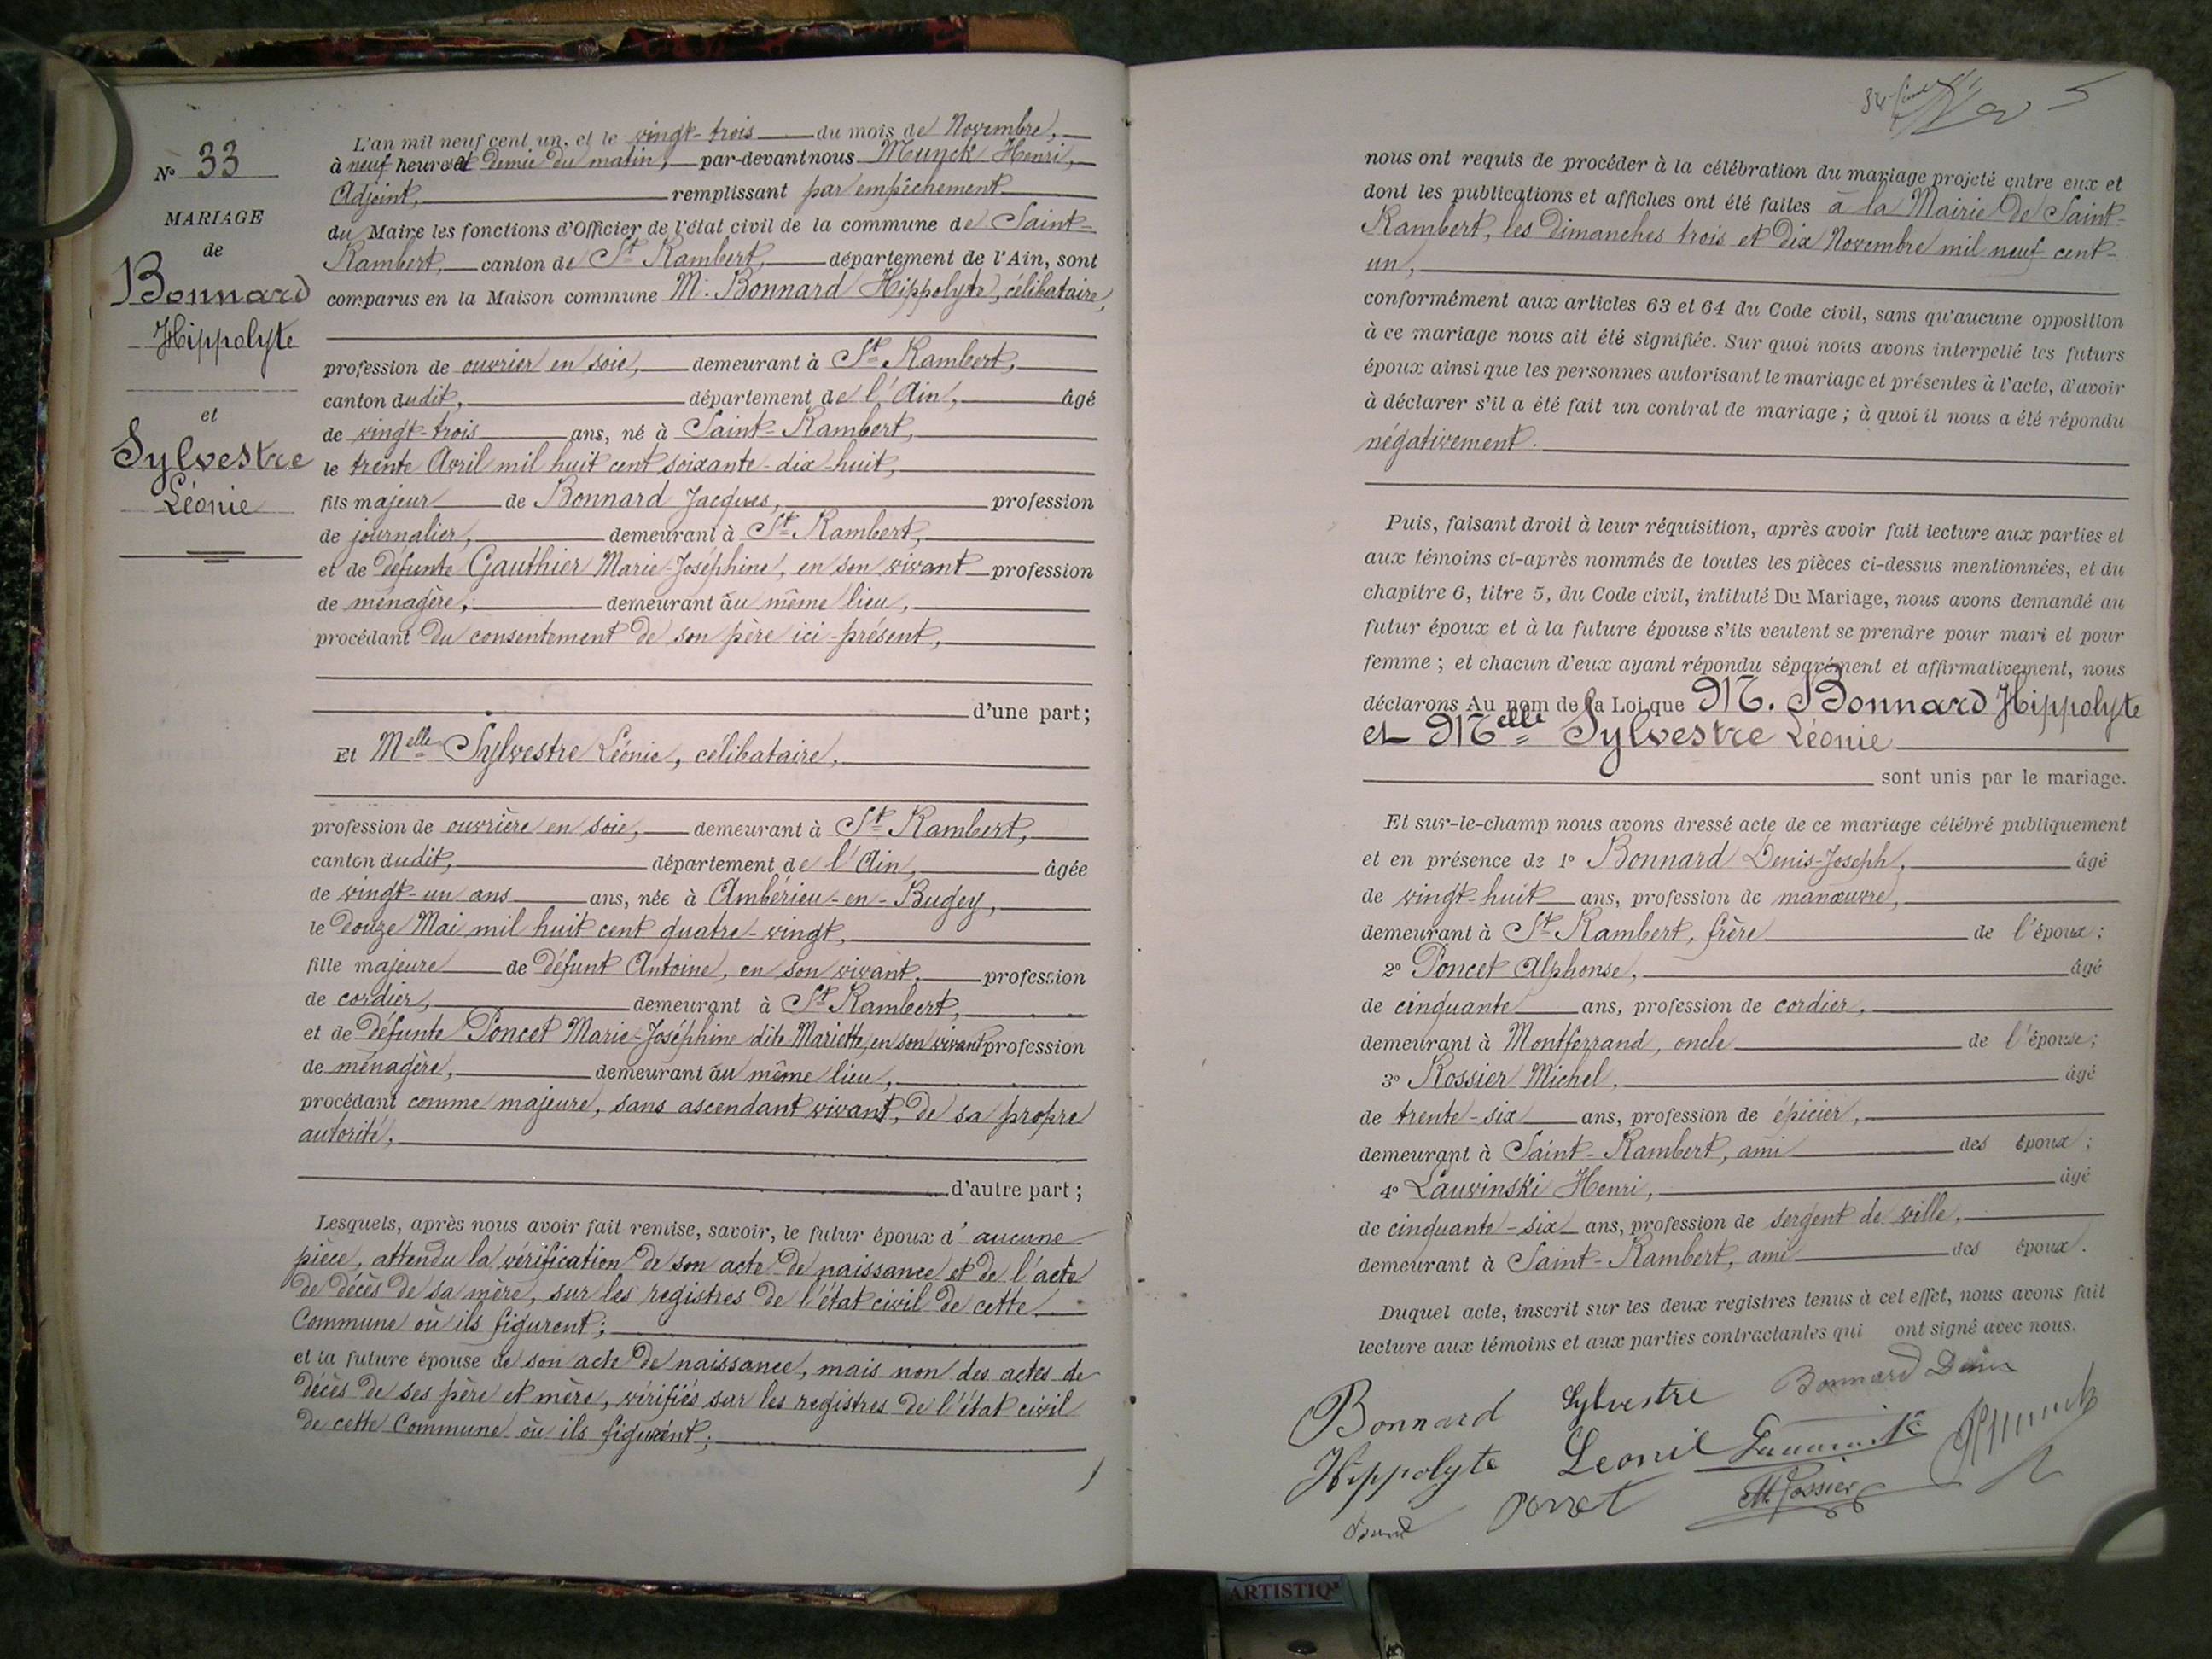 N° 33
MARIAGE
de
Bonnard
Hippolyte
et
Sylvestre
Léonie
L'an mil neuf cent un, et le vingt-trois du mois de Novembre,
à neuf heures et demie du matin, par-devant nous Munck Henri,
Adjoint, remplissant par empêchement
du Maire les fonctions d'Officier de l'état civil de la commune de Saint-
Rambert, canton de St Rambert, département de l'Ain, sont
comparus en la Maison commune M. Bonnard Hippolyte, célibataire,
profession de ouvrier en soie, demeurant à St Rambert,
canton dudit, département de l'Ain, âgé
de vingt-trois ans, né à Saint-Rambert,
le trente Avril mil huit cent soixante-dix-huit,
fils majeur de Bonnard Jacques, profession
de journalier, demeurant à St Rambert,
et de défunte Gauthier Marie-Joséphine, en son vivant profession
de ménagère, demeurant au même lieu,
procédant du consentement de son père ici-présent,
d'une part;
Et Melle Sylvestre Léonie, célibataire,
profession de ouvrière en soie, demeurant à St Rambert,
canton dudit, département de l'Ain, âgée
de vingt-un ans ans, née à Ambérieu-en-Bugey,
le douze Mai mil huit cent quatre-vingt,
fille majeure de défunt Antoine, en son vivant, profession
de cordier, demeurant à St Rambert,
et de défunte Poncet Marie-Joséphine dite Mariette, en son vivant profession
de ménagère, demeurant au même lieu,
procédant comme majeure, sans ascendant vivant, de sa propre
autorité,
d'autre part;
Lesquels, après nous avoir fait remise, savoir, le futur époux d'aucune
pièce, attendu la vérification de son acte de naissance et de l'acte
de décès de sa mère, sur les registres de l'état civil de cette
Commune où ils figurent;
et la future épouse de son acte de naissance, mais non des actes de
décès de ses père et mère, vérifiés sur les registres de l'état civil
de cette Commune où ils figurent;
nous ont requis de procéder à la célébration du mariage projeté entre eux et
dont les publications et affiches ont été faites à la Mairie de Saint-
Rambert, les dimanches trois et dix Novembre mil neuf cent-
un,
conformément aux articles 63 et 64 du Code civil, sans qu'aucune opposition
à ce mariage nous ait été signifiée. Sur quoi nous avons interpellé les futurs
époux ainsi que les personnes autorisant le mariage et présentes à l'acte, d'avoir
à déclarer s'il a été fait un contrat de mariage ; à quoi il nous a été répondu
négativement.
Puis, faisant droit à leur réquisition, après avoir fait lecture aux parties et
aux témoins ci-après nommés de toutes les pièces ci-dessus mentionnées, et du
chapitre 6, titre 5, du Code civil, intitulé Du Mariage, nous avons demandé au
futur époux et à la future épouse s'ils veulent se prendre pour mari et pour
femme ; et chacun d'eux ayant répondu séparément et affirmativement, nous
déclarons Au nom de la Loi que M. Bonnard Hippolyte
et Melle Sylvestre Léonie
sont unis par le mariage.
Et sur-le-champ nous avons dressé acte de ce mariage célébré publiquement
et en présence de 1° Bonnard Denis-Joseph, âgé
de vingt-huit ans, profession de manœuvre,
demeurant à St Rambert, frère de l'époux;
2° Poncet Alphonse, âgé
de cinquante ans, profession de cordier,
demeurant à Montferrand, oncle de l'épouse;
3° Rossier Michel, âgé
de trente-six ans, profession de épicier,
demeurant à Saint-Rambert, ami des époux;
4° Lauvinski Henri, âgé
de cinquante-six ans, profession de sergent de ville,
demeurant à Saint-Rambert, ami des époux.
Duquel acte, inscrit sur les deux registres tenus à cet effet, nous avons fait
lecture aux témoins et aux parties contractantes qui ont signé avec nous.
Bonnard Sylvestre Bonnard Denis
Hippolyte Leonie
M. Rossier
ARTISTIQ